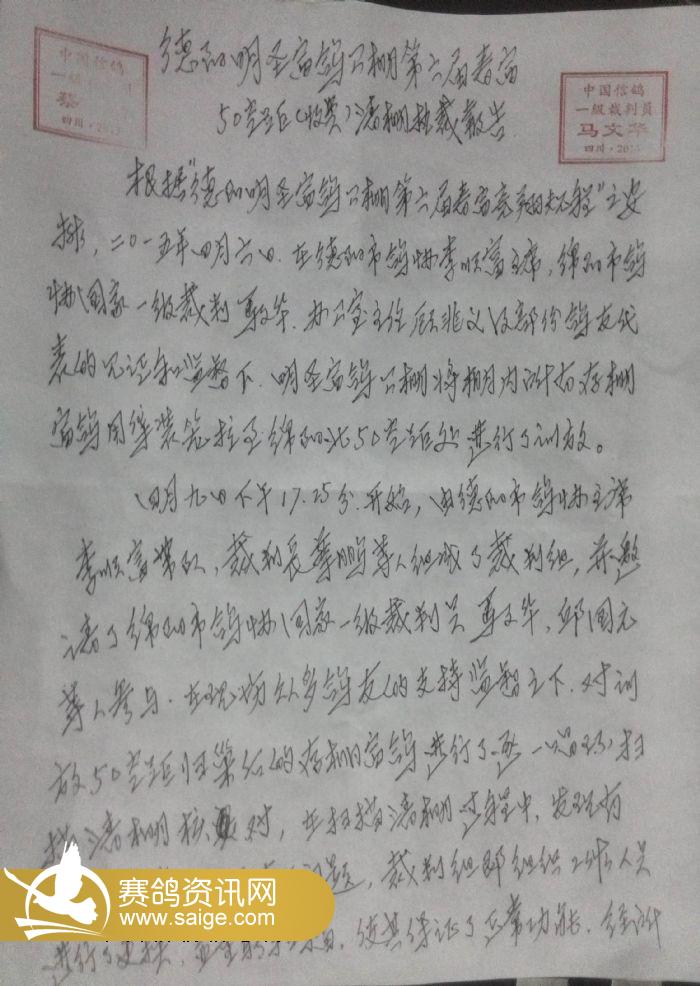 中国信鸽
一级
四川·2013
中国信鸽
一级裁判员
马文华
四川·201
德阳明圣宫鸽公棚第六届春宫
50公里(收费)清棚执裁报告
根据"德阳明圣宫鸽公棚第六届春宫竞翔规程"之安
排,二〇一五年四月六日,在德阳市鸽协李顺富主席,绵阳市鸽
协国家一级裁判马文华、办公室主任 及部份鸽友代
表的见证和监督下,明圣宫鸽公棚将棚内所有存棚
宫鸽用 装笼拉至绵阳北50公里 进行了训放。
四月九日下午17.25分开始,由德阳市鸽协主席
李顺富带队,裁判长 等人组成了裁判组,并邀
请了绵阳市鸽协国家一级裁判员马文华,邱国元
等人参与,在现场众多鸽友的支持监督之下,对训
放50公里归巢后的存棚宫鸽进行了逐一 扫
描清棚核对,在扫描清棚过程中,发现有
问题,裁判组即组织工作人员
进行了更换, 使其保证了正常功能,经
赛鸽资讯网
www.saige.com